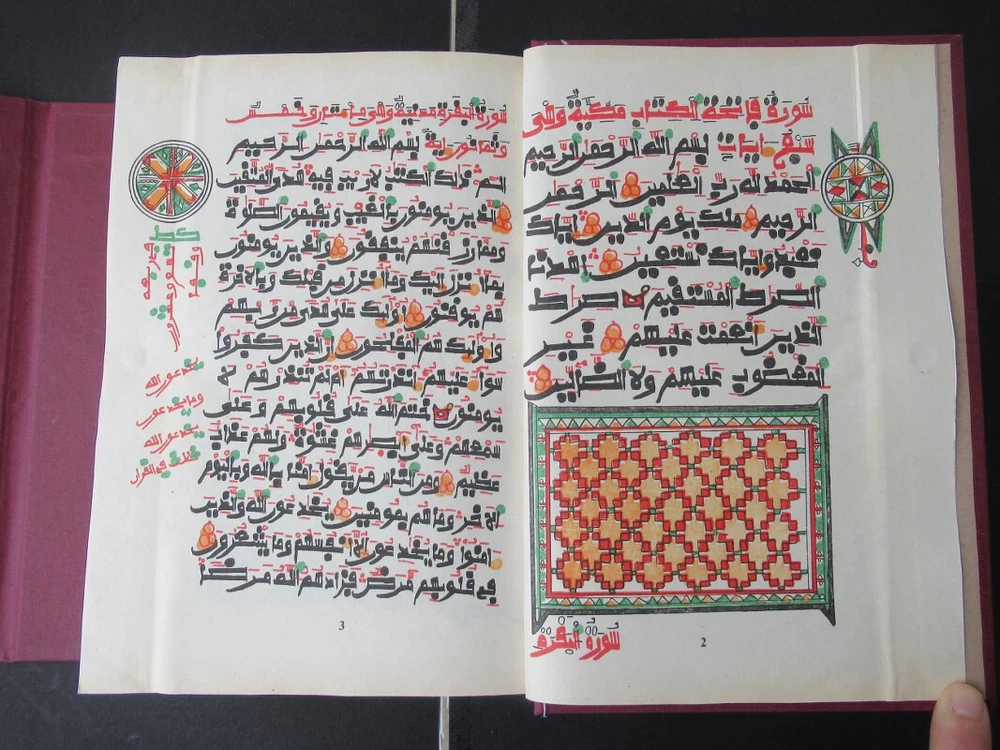 سورة فاتحة الكتاب مكية وهى
سبع ايات بسم الله الرحمن الرحيم
الحمد لله رب العلمين الرحمن
الرحيم ملك يوم الدين اياك
نعبد واياك نستعين اهدنا
الصراط المستقيم صراط
الذين انعمت عليهم غير
المغضوب عليهم ولا الضالين
سورة البقرة
2
سورة البقرة مدنية وهى وخمس
وثمانون اية بسم الله الرحمن الرحيم
الم ذلك الكتب لا ريب فيه هدى للمتقين
الذين يومنون بالغيب ويقيمون الصلوة
ومما رزقنهم ينفقون والذين يومنون
بما انزل اليك وما انزل من قبلك وبالاخرة
هم يوقنون اوليك على هدى من ربهم
واوليك هم المفلحون ان الذين كفروا
سوا عليهم انذرتهم ام لم تنذرهم لا
يومنون ختم الله على قلوبهم وعلى
سمعهم وعلى ابصرهم غشوة ولهم عذاب
عظيم ومن الناس من يقول امنا بالله وباليوم
الاخر وما هم بمومنين يخدعون الله والذين
امنوا وما يخدعون الا انفسهم وما يشعرون
في قلوبهم مرض فزادهم الله مرضا
يخدعون الله
وما يخدعون
يخدعون الله
3